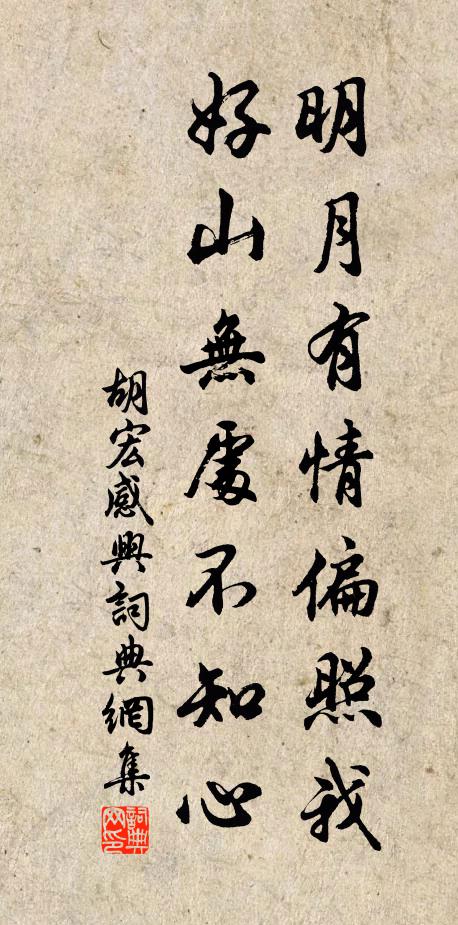 明月有情偏照我
好山無處不知心
胡宏感興詞典網集
詞典网印